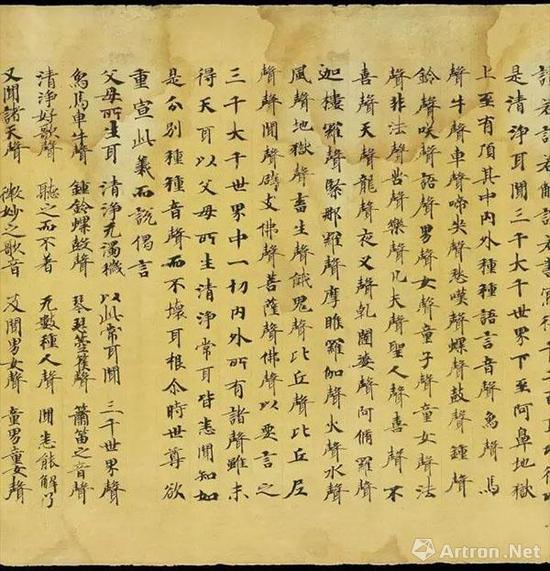 若解說若書寫得千二百耳功德
是清淨耳聞三千大千世界下至阿鼻地獄
上至有頂其中內外種種語言音聲象聲馬
聲牛聲車聲啼哭聲愁嘆聲螺聲鼓聲鍾聲
鈴聲咲聲語聲男聲女聲童子聲童女聲法
聲非法聲苦聲樂聲凡夫聲聖人聲喜聲不
喜聲天聲龍聲夜叉聲乹闥婆聲阿脩羅聲
迦樓羅聲緊那羅聲摩睺羅伽聲火聲水聲
風聲地獄聲畜生聲餓鬼聲比丘聲比丘尼
聲聲聞聲辟支佛聲菩薩聲佛聲以要言之
三千大千世界中一切內外所有諸聲雖未
得天耳以父母所生清淨常耳皆悉聞知如
是分別種種音聲而不壞耳根尒時世尊欲
重宣此義而說偈言
父母所生耳 清淨无濁穢 以此常耳聞 三千世界聲
象馬車牛聲 鍾鈴螺鼓聲 琴瑟箜篌聲 簫笛之音聲
清淨好歌聲 聽之而不著 无數種人聲 聞悉能解了
又聞諸天聲 微妙之歌音 及聞男女聲 童男童女聲
Artron.Net